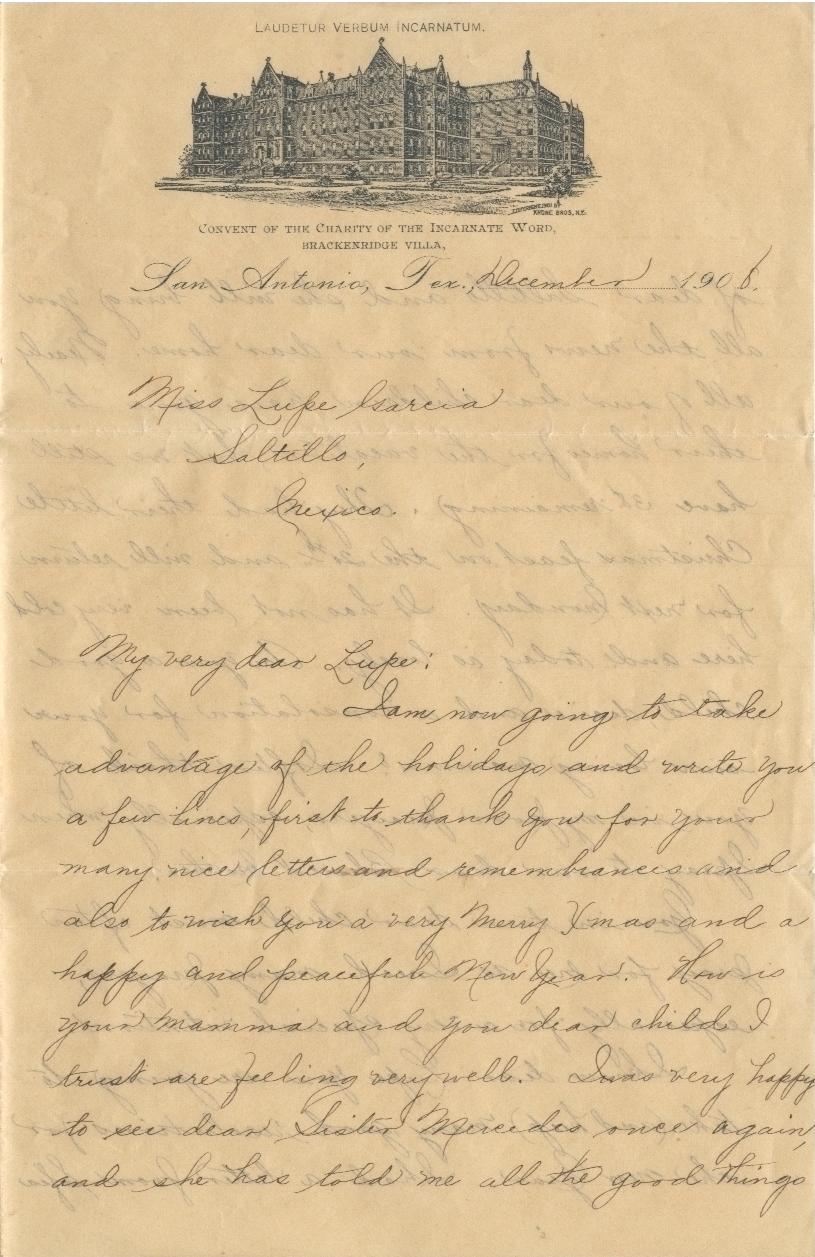 LAUDETUR VERBUM INCARNATUM.
KRONE BROS, N.Y.
CONVENT OF THE CHARITY OF THE INCARNATE WORD,
BRACKENRIDGE VILLA,
San Antonio, Tex., December 1906.
Miss Lupe Garcia
Saltillo,
Mexico.
My very dear Lupe:
I am now going to take
advantage of the holidays and write you
a few lines, first to thank you for your
many nice letters and remembrances and
also to wish you a very Merry Xmas and a
happy and peaceful New Year. How is
your mamma and you dear child I
trust are feeling very well. I was very happy
to see dear Sister Mercedes once again,
and she has told me all the good things